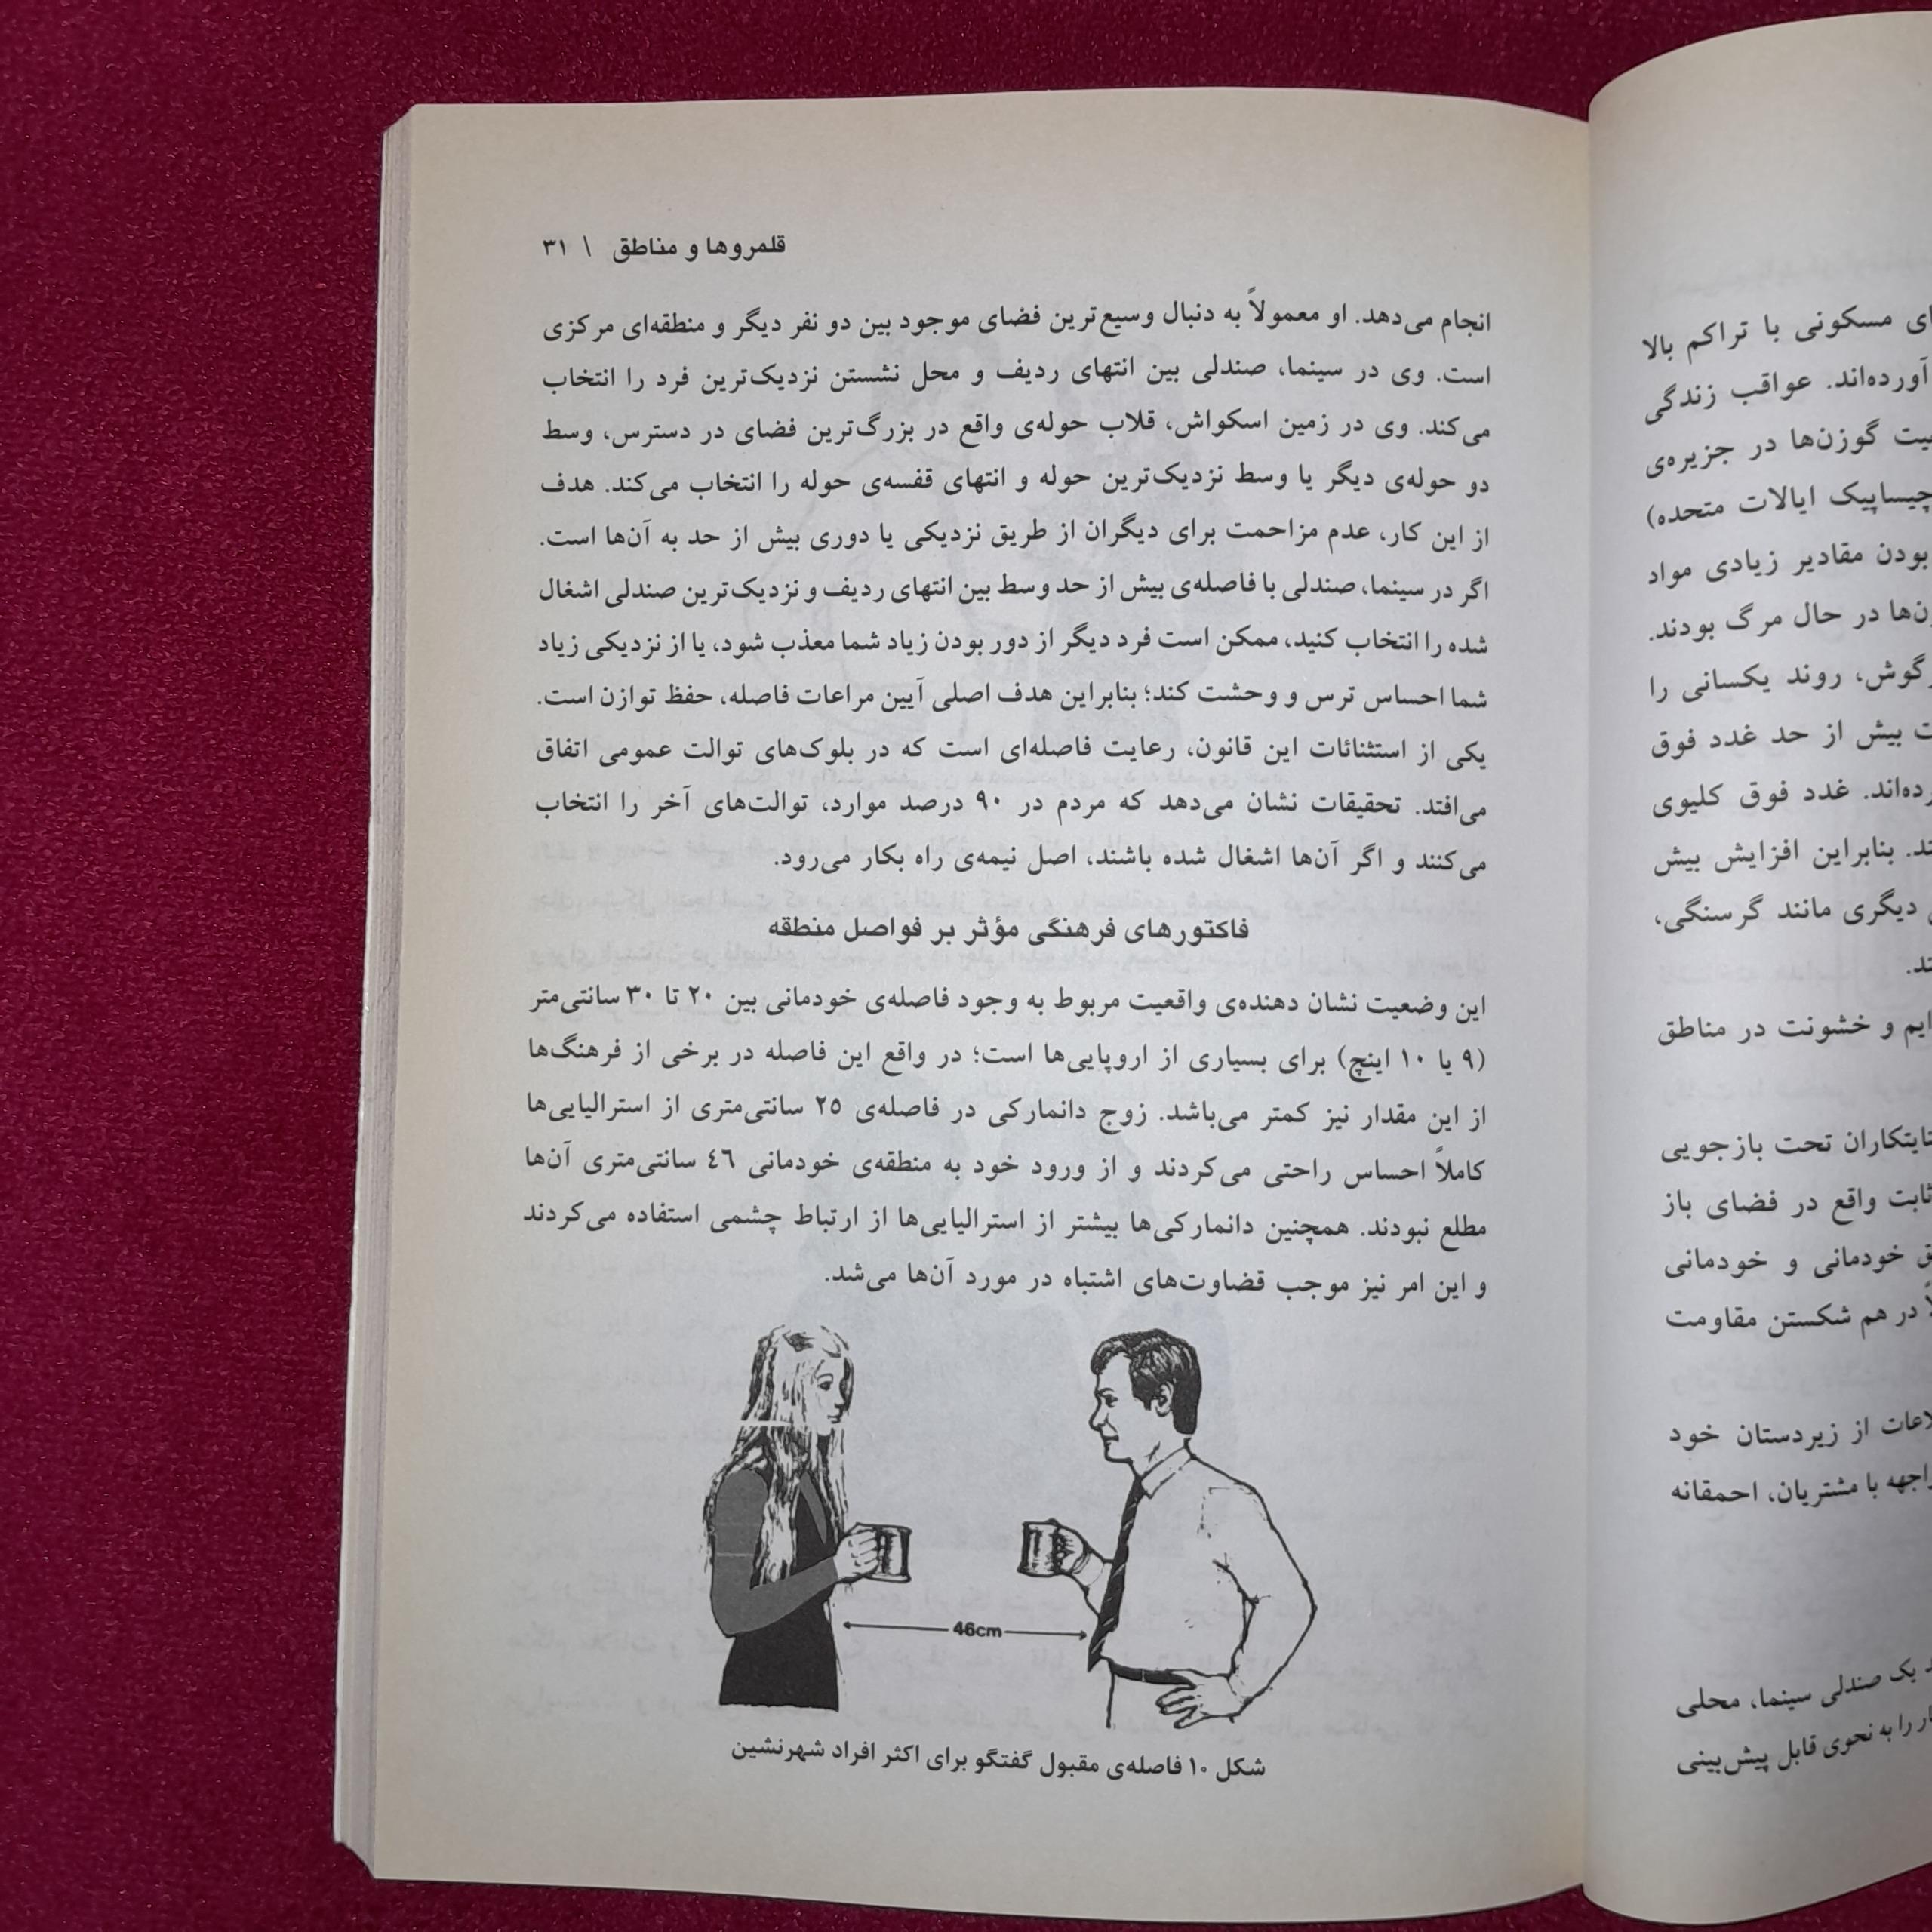 قلمروها و مناطق \ ۳۱
انجام می‌دهد. او معمولاً به دنبال وسیع‌ترین فضای موجود بین دو نفر دیگر و منطقه‌ای مرکزی
است. وی در سینما، صندلی بین انتهای ردیف و محل نشستن نزدیک‌ترین فرد را انتخاب
می‌کند. وی در زمین اسکواش، قلاب حوله‌ی واقع در بزرگ‌ترین فضای در دسترس، وسط
دو حوله‌ی دیگر یا وسط نزدیک‌ترین حوله و انتهای قفسه‌ی حوله را انتخاب می‌کند. هدف
از این کار، عدم مزاحمت برای دیگران از طریق نزدیکی یا دوری بیش از حد به آن‌ها است.
اگر در سینما، صندلی با فاصله‌ی بیش از حد وسط بین انتهای ردیف و نزدیک‌ترین صندلی اشغال
شده را انتخاب کنید، ممکن است فرد دیگر از دور بودن زیاد شما معذب شود، یا از نزدیکی زیاد
شما احساس ترس و وحشت کند؛ بنابراین هدف اصلی آیین مراعات فاصله، حفظ توازن است.
یکی از استثنائات این قانون، رعایت فاصله‌ای است که در بلوک‌های توالت عمومی اتفاق
می‌افتد. تحقیقات نشان می‌دهد که مردم در ۹۰ درصد موارد، توالت‌های آخر را انتخاب
می‌کنند و اگر آن‌ها اشغال شده باشند، اصل نیمه‌ی راه بکار می‌رود.
فاکتورهای فرهنگی مؤثر بر فواصل منطقه
این وضعیت نشان دهنده‌ی واقعیت مربوط به وجود فاصله‌ی خودمانی بین ۲۰ تا ۳۰ سانتی‌متر
(۹ یا ۱۰ اینچ) برای بسیاری از اروپایی‌ها است؛ در واقع این فاصله در برخی از فرهنگ‌ها
از این مقدار نیز کمتر می‌باشد. زوج دانمارکی در فاصله‌ی ۲۵ سانتی‌متری از استرالیایی‌ها
کاملاً احساس راحتی می‌کردند و از ورود خود به منطقه‌ی خودمانی ۴۶ سانتی‌متری آن‌ها
مطلع نبودند. همچنین دانمارکی‌ها بیشتر از استرالیایی‌ها از ارتباط چشمی استفاده می‌کردند
و این امر نیز موجب قضاوت‌های اشتباه در مورد آن‌ها می‌شد.
46cm
شکل ۱۰ فاصله‌ی مقبول گفتگو برای اکثر افراد شهرنشین
مسکونی با تراکم بالا
آورده‌اند. عواقب زندگی
گوزن‌ها در جزیره‌ی
چیساپیک ایالات متحده)
بودن مقادیر زیادی مواد
در حال مرگ بودند.
روند یکسانی را
بیش از حد غدد فوق
غدد فوق کلیوی
بنابراین افزایش بیش
دیگری مانند گرسنگی،
و خشونت در مناطق
تحت بازجویی
واقع در فضای باز
خودمانی و خودمانی
در هم شکستن مقاومت
از زیردستان خود
با مشتریان، احمقانه
یک صندلی سینما، محلی
را به نحوی قابل پیش‌بینی